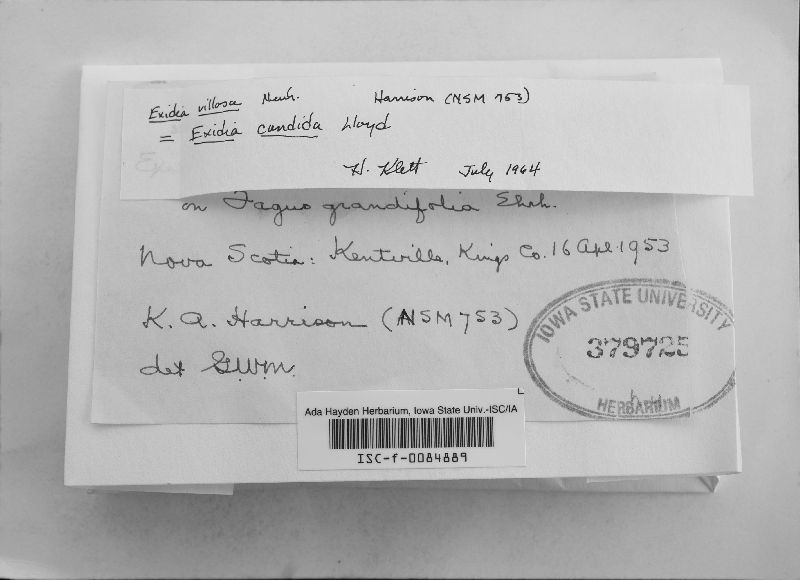 Exidia villosa Neuh. Harrison (NSM 753)
= Exidia candida Lloyd
H. Klett July 1964
on Fagus grandifolia Ehrh.
Nova Scotia: Kentville, Kings Co. 16 Apl. 1953
K. A. Harrison (NSM 753)
det G.W.M.
IOWA STATE UNIVERSITY
379725
HERBARIUM
Ada Hayden Herbarium, Iowa State Univ.-ISC/IA
ISC-f-0084889